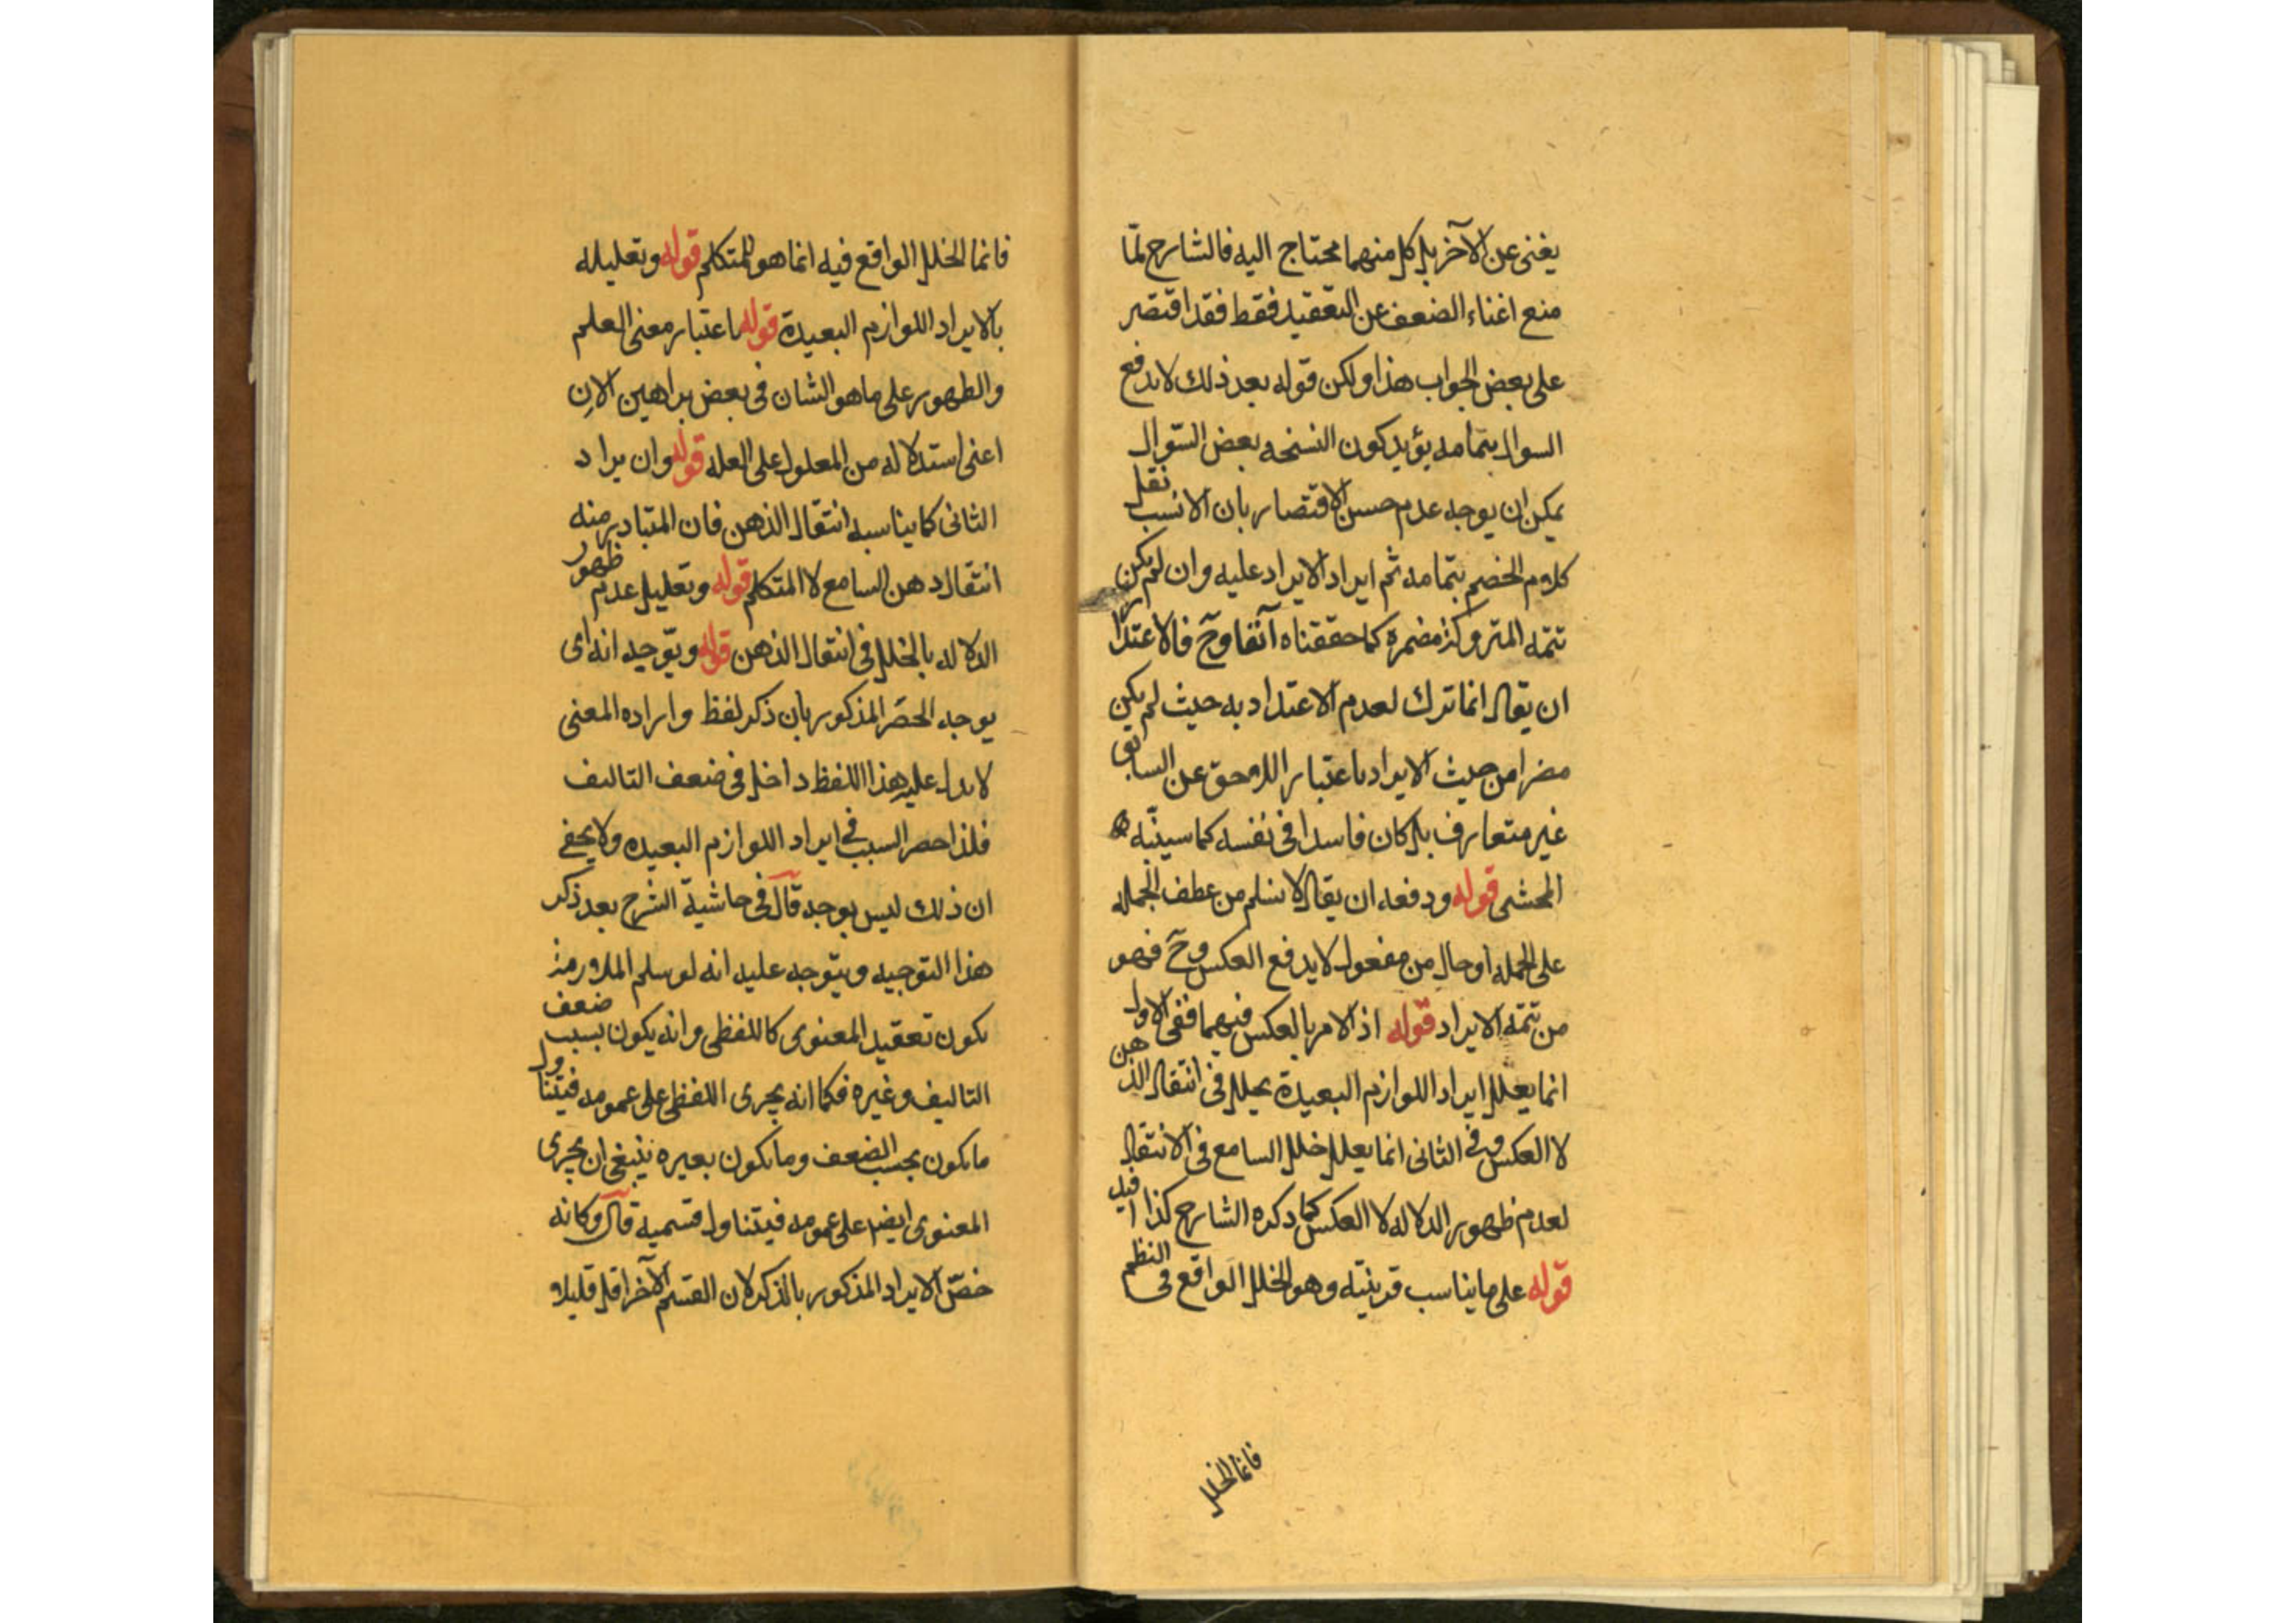 يغنى عن الآخر بل كل منهما محتاج اليه فالشارح لمّا
منع اغناء الضعف عن التعقيد فقط فقد اقتصر
على بعض الجواب هذا ولكن قوله بعد ذلك لا يدفع
السوال بتمامه يؤيد كون النسخه بعض السّوال
يمكن ان يوجه عدم حسن الاقتصار بان الانسب نقل
كلام الخصم بتمامه ثم ايراد الايراد عليه وان لم يكن
تتمه المتروكة مضمرة كما حققناه آنفا وحٓ فالاعتذار
ان يقال انما ترك لعدم الاعتداد به حيث لم يكن
مضرا من حيث الايراد باعتبار اللاحق عن السابق
غير متعارف بل كان فاسدا فى نفسه كما سينبّه
المحشى قوله ودفعه ان يقال لا نسلم من عطف الجمله
على الجمله او حال من مفعول لا يدفع العكس وحٓ فهو
من تتمه الايراد قوله اذ الامر بالعكس فيهما ففى الاول
انما يعلل ايراد اللوازم البعيدة بخلل فى انتقال الذهن
لا العكس وفى الثانى انما يعلل خلل السامع فى الانتقال
لعدم ظهور الدلاله لا العكس كما ذكره الشارح كذا افيد
قوله على ما يناسب قرينته وهو الخلل الواقع فى النظم
فانما الخلل
فانما الخلل الواقع فيه انما هو للمتكلم قوله وتعليله
بالايراد اللوازم البعيدة قوله باعتبار معنى العلم
والظهور على ما هو الشان فى بعض براهين الان
اعنى استدلاله من المعلول على العله قوله وان يراد
الثانى كما يناسبه انتقال الذهن فان المتبادر منه
انتقال ذهن السامع لا المتكلم قوله وتعليل عدم ظهور
الدلاله بالخلل فى انتقال الذهن قوله وتوجيه انه اى
يوجه الحصر المذكور بان ذكر لفظ واراده المعنى
لا يدل عليه هذا اللفظ داخل فى ضعف التاليف
فلذا حصر السبب فى ايراد اللوازم البعيده ولا يخفى
ان ذلك ليس بوجه قال فى حاشية الشرح بعد ذكر
هذا التوجيه ويتوجه عليه انه لو سلم الملازمة
يكون تعقيد المعنوى كاللفظى وانه يكون بسبب ضعف
التاليف وغيره فكما انه يجرى اللفظى على عمومه فيتناول
ما يكون بحسب الضعف وما يكون بغيره ينبغى ان يجرى
المعنوى ايضا على عمومه فيتناول قسميه قال وكانه
خصّ الايراد المذكور بالذكر لان القسم الآخر اقل قليلا و